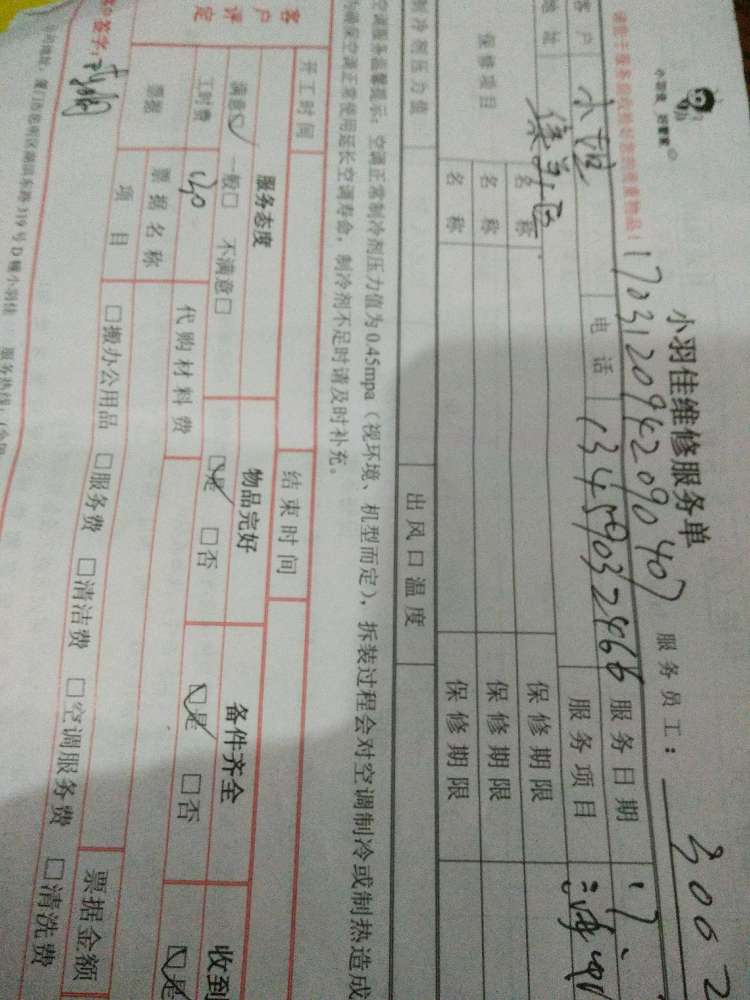 小羽佳 好管家
小羽佳维修服务单
1703120942090407
服务员工：
3002
请您于服务前收检好您的贵重物品！
客户
电话
13459032466
服务日期
17.
地址
集美区
服务项目
保修项目
名称
保修期限
名称
保修期限
名称
保修期限
制冷剂压力值
出风口温度
空调服务温馨提示：空调正常制冷剂压力值为0.45mpa（视环境、机型而定），拆装过程会对空调制冷或制热造成
为确保空调正常使用延长空调寿命，制冷剂不足时请及时补充。
开工时间
结束时间
客户评定
服务态度
物品完好
备件齐全
收到
满意☑ 一般□ 不满意□
☑是 □否
☑是 □否
☑是
工时费
代购材料费
票据
票据名称
票据金额
项目
□搬办公用品 □服务费 □清洁费 □空调服务费 □清洗费
客户签字：
公司地址：厦门市思明区湖滨东路319号D幢小羽佳 服务热线：